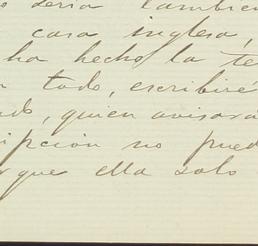 seria tambien
casa inglesa,
ha hecho la te
todo, escribiré
do, quien avisará
ipción no pued
rque ella solo